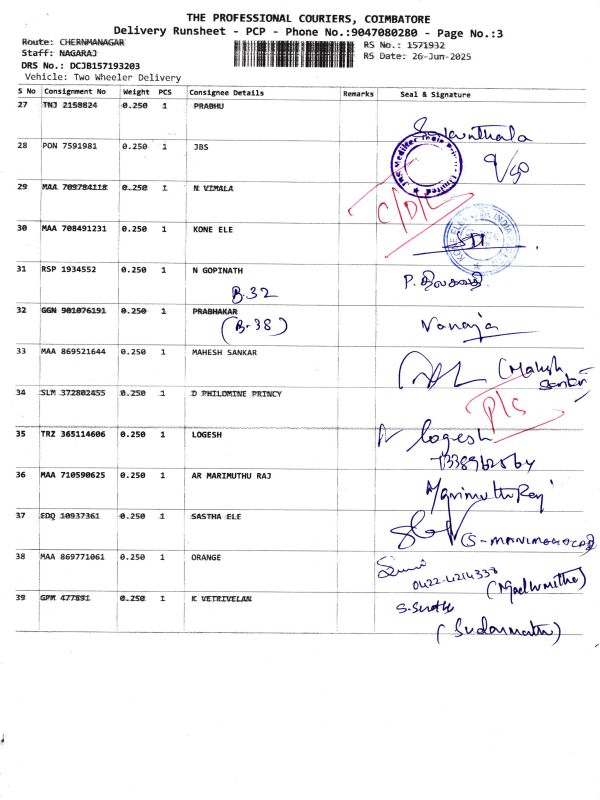 THE PROFESSIONAL COURIERS, COIMBATORE
Delivery Runsheet - PCP - Phone No.:9047080280 - Page No.:3
Route: CHERNMANAGAR
Staff: NAGARAJ
DRS No.: DCJB157193203
Vehicle: Two Wheeler Delivery
RS No.: 1571932
RS Date: 26-Jun-2025
S No Consignment No Weight PCS Consignee Details Remarks Seal & Signature
27 TNJ 2158824 0.250 1 PRABHU
28 PON 7591981 0.250 1 JBS
29 MAA 709784118 0.250 1 N VIMALA
C/D/L
30 MAA 708491231 0.250 1 KONE ELE
31 RSP 1934552 0.250 1 N GOPINATH
B.32
32 GGN 901076191 0.250 1 PRABHAKAR
(B-38)
Vanaja
33 MAA 869521644 0.250 1 MAHESH SANKAR
(Mahesh Sankar)
34 SLM 372802455 0.250 1 D PHILOMINE PRINCY
P/S
35 TRZ 365114606 0.250 1 LOGESH
logesh
36 MAA 710590625 0.250 1 AR MARIMUTHU RAJ
Marimuthu Raj
37 EDQ 10937361 0.250 1 SASTHA ELE
38 MAA 869771061 0.250 1 ORANGE
0422-4214338
39 GPM 477891 0.250 1 K VETRIVELAN